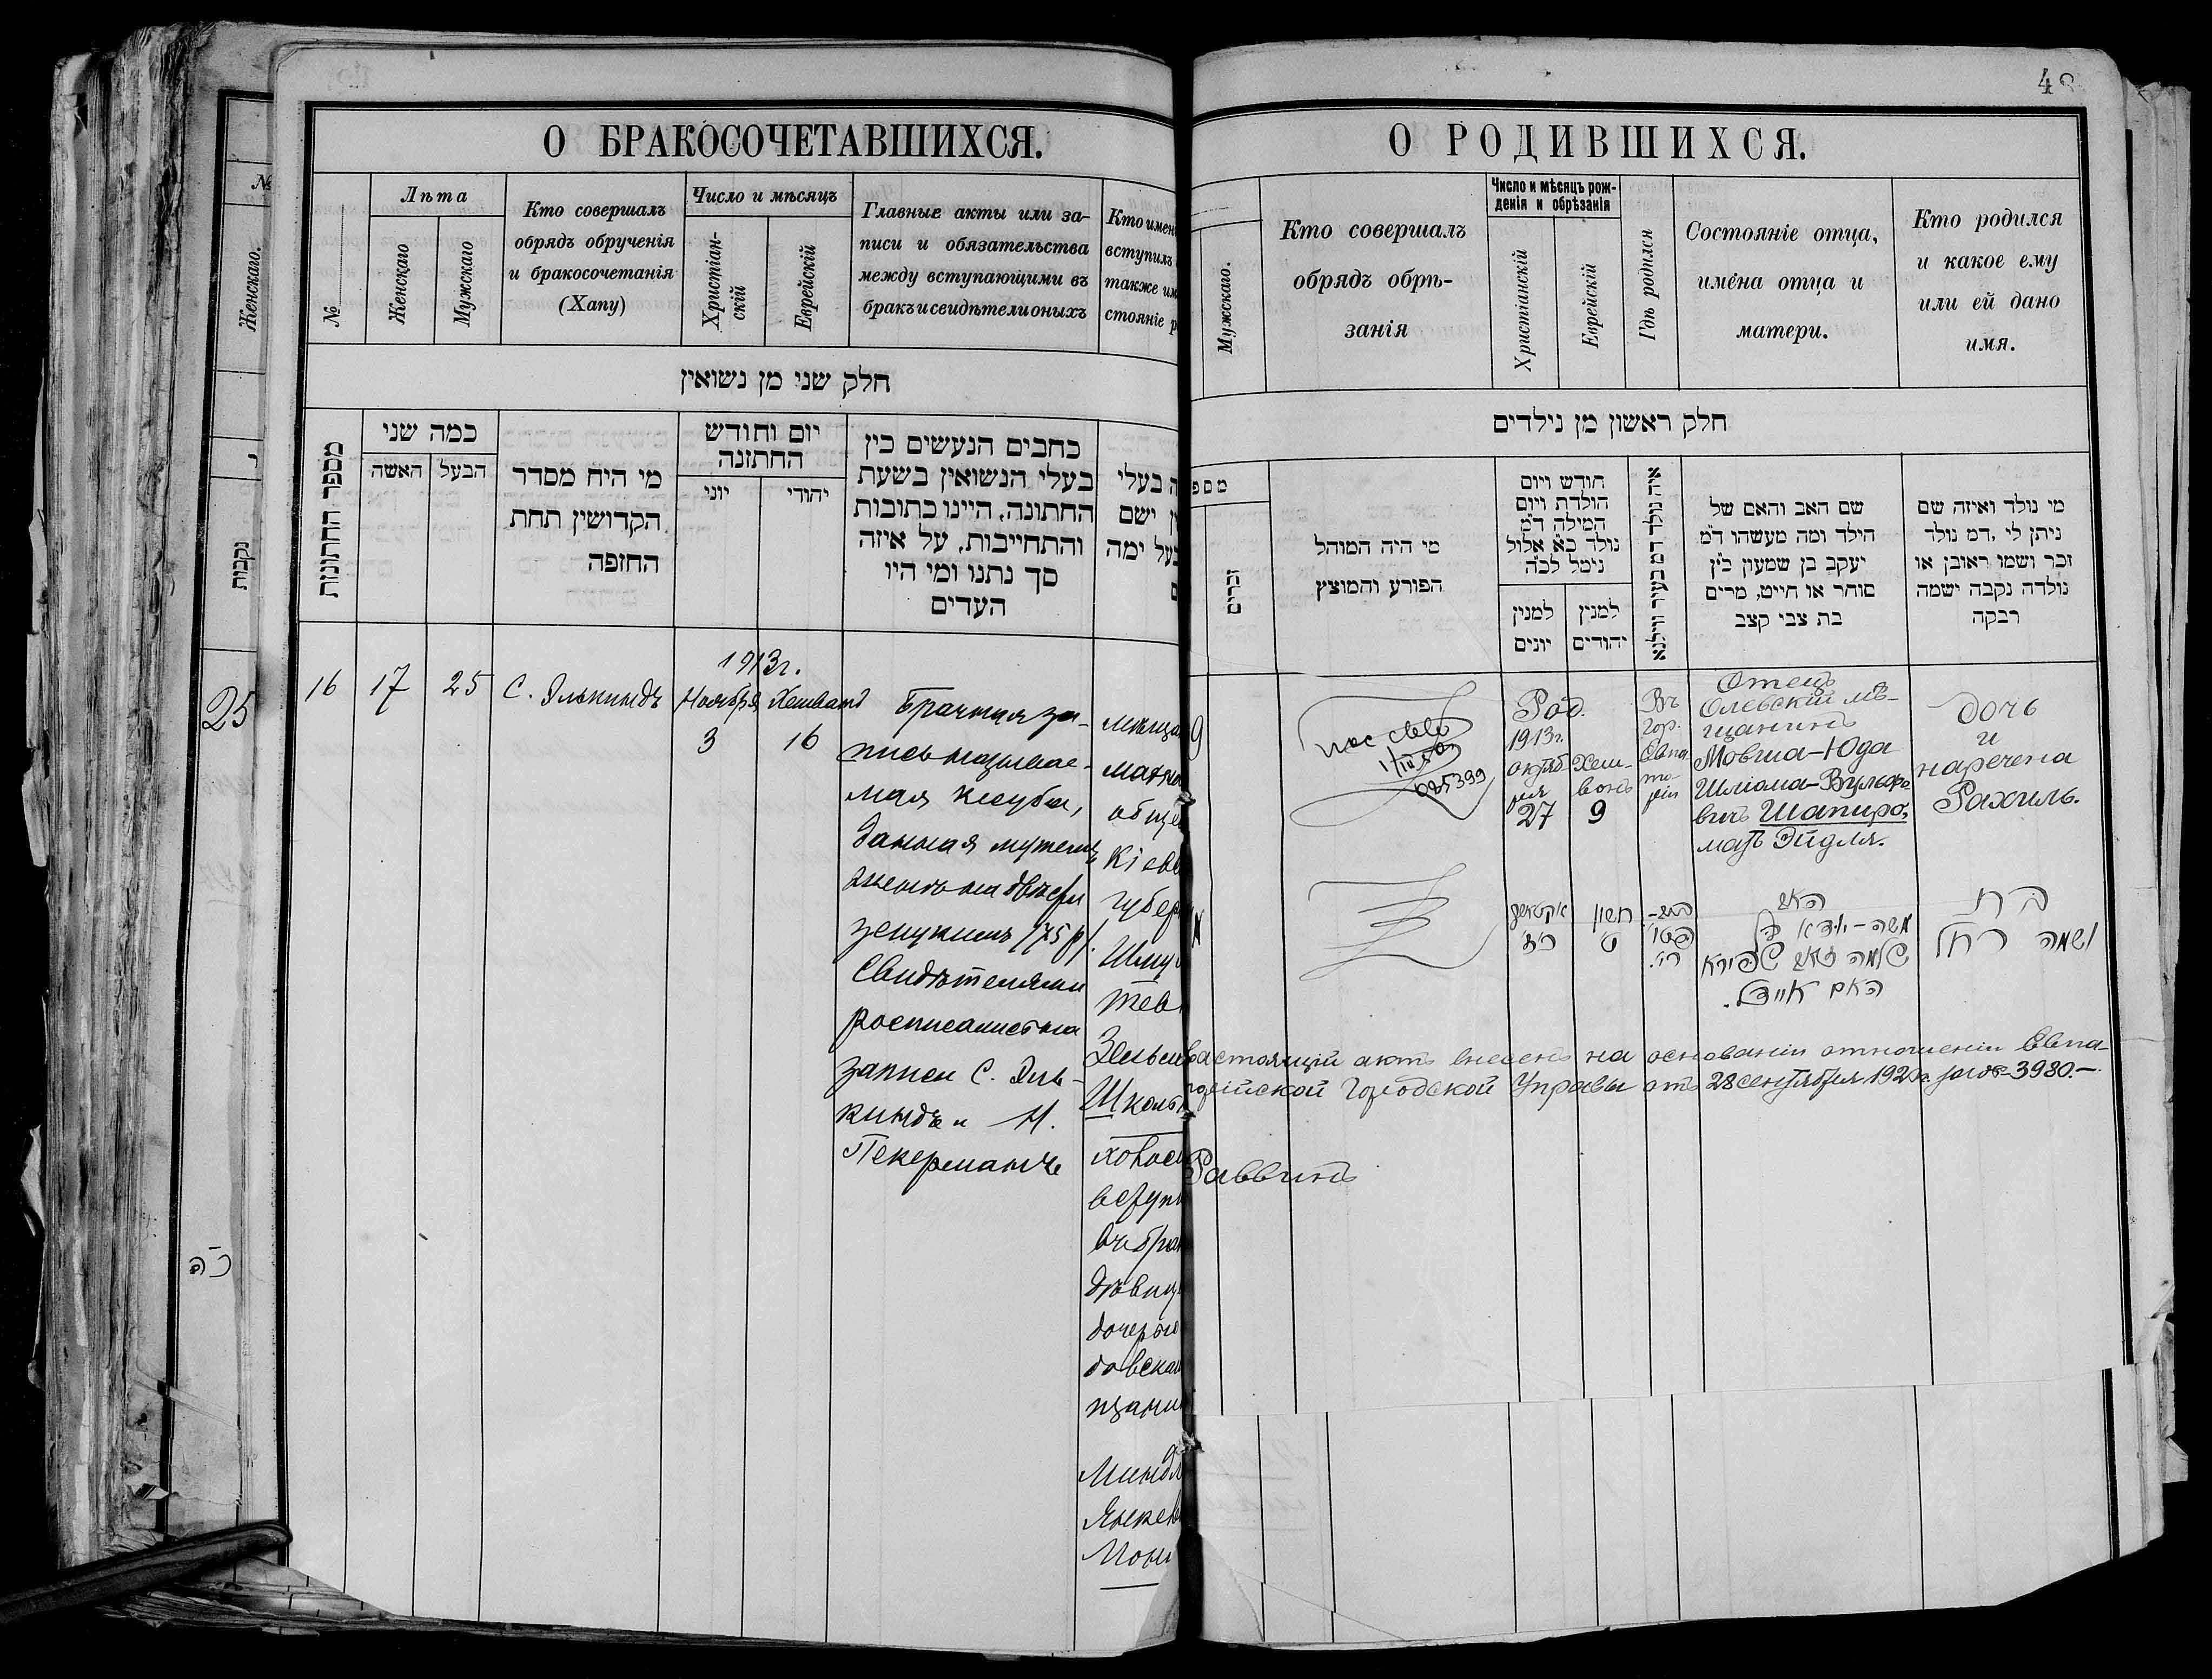 №
Женскаго.
נקבות
25
כה
О БРАКОСОЧЕТАВШИХСЯ.
№
Лѣта
Женскаго
Мужскаго
Кто совершалъ
обрядъ обрученія
и бракосочетанія
(Хапу)
Число и мѣсяцъ
Христіан-
скій
Еврейскій
Главные акты или за-
писи и обязательства
между вступающими въ
бракъ и свидѣтели оныхъ
Кто имен
вступилъ
также им
стояніе р
חלק שני מן נשואין
מספר החתונות
כמה שני
האשה
הבעל
מי היה מסדר
הקדושין תחת
החופה
יום וחודש
החתונה
יוני
יהודי
כתבים הנעשים בין
בעלי הנשואין בשעת
החתונה, היינו כתובות
והתחייבות, על איזה
סך נתנו ומי היו
העדים
ה בעלי
ין ישם
בעל ימה
ם
16
17
25
С. Элькиндъ
1913г.
Ноября
3
Хешвана
16
Брачная за-
пись называе-
мая кетуба,
данная мужемъ
женѣ на двѣсти
зекукимъ /75 р/.
Свидѣтелями
росписались на
записи С. Эль-
киндъ и М.
Пекерманъ
мѣща
общ
Кіев
губер
Шму
Тев
Зельм
Школь
холос
вступ
въ бра
дѣвиц
дочерью
довска
щани
Янкел
4
О РОДИВШИХСЯ.
Мужскаго.
Кто совершалъ
обрядъ обрѣ-
занія
Число и мѣсяцъ рож-
денія и обрѣзанія
Христіанскій
Еврейскій
Гдѣ родился
Состояніе отца,
имена отца и
матери.
Кто родился
и какое ему
или ей дано
имя.
חלק ראשון מן נילדים
מספ
זכרים
מי היה המוהל
הפורע והמוצץ
חודש ויום
הולדת ויום
המילה ד"מ
נולד כ"א אלול
נימל לכ"ה
למנין
יונים
למנין
יהודים
איה נולד ד"מ בעיר ווילנא
שם האב והאם של
הילד ומה מעשהו ד"מ
יעקב בן שמעון כ"ץ
סוחר או חייט, מרים
בת צבי קצב
מי נולד ואיזה שם
ניתן לו, ד"מ נולד
זכר ושמו ראובן או
נולדה נקבה ישמה
רבקה
9
085399
Род.
1913г.
октяб
ря
27
Хеш-
вонъ
9
Въ
гор.
Евпа
то-
ріи
Отецъ
Олевскій мѣ-
щанинъ
Мовша-Юда
Шліома-Вульфо
вичъ Шапиро,
мать Эйдля.
дочь
и
наречена
Рахиль.
אקטאבר
כ״ז
חשון
ט
האב
משה-יודא בן
שלמה זאב שפירא
האם איידל.
בת
ושמה רחל
астоящій актъ внесенъ на основаніи отношенія Евпа-
торійской Городской Управы отъ 28 сентября 1920г. за № 3980.-
Раввинъ